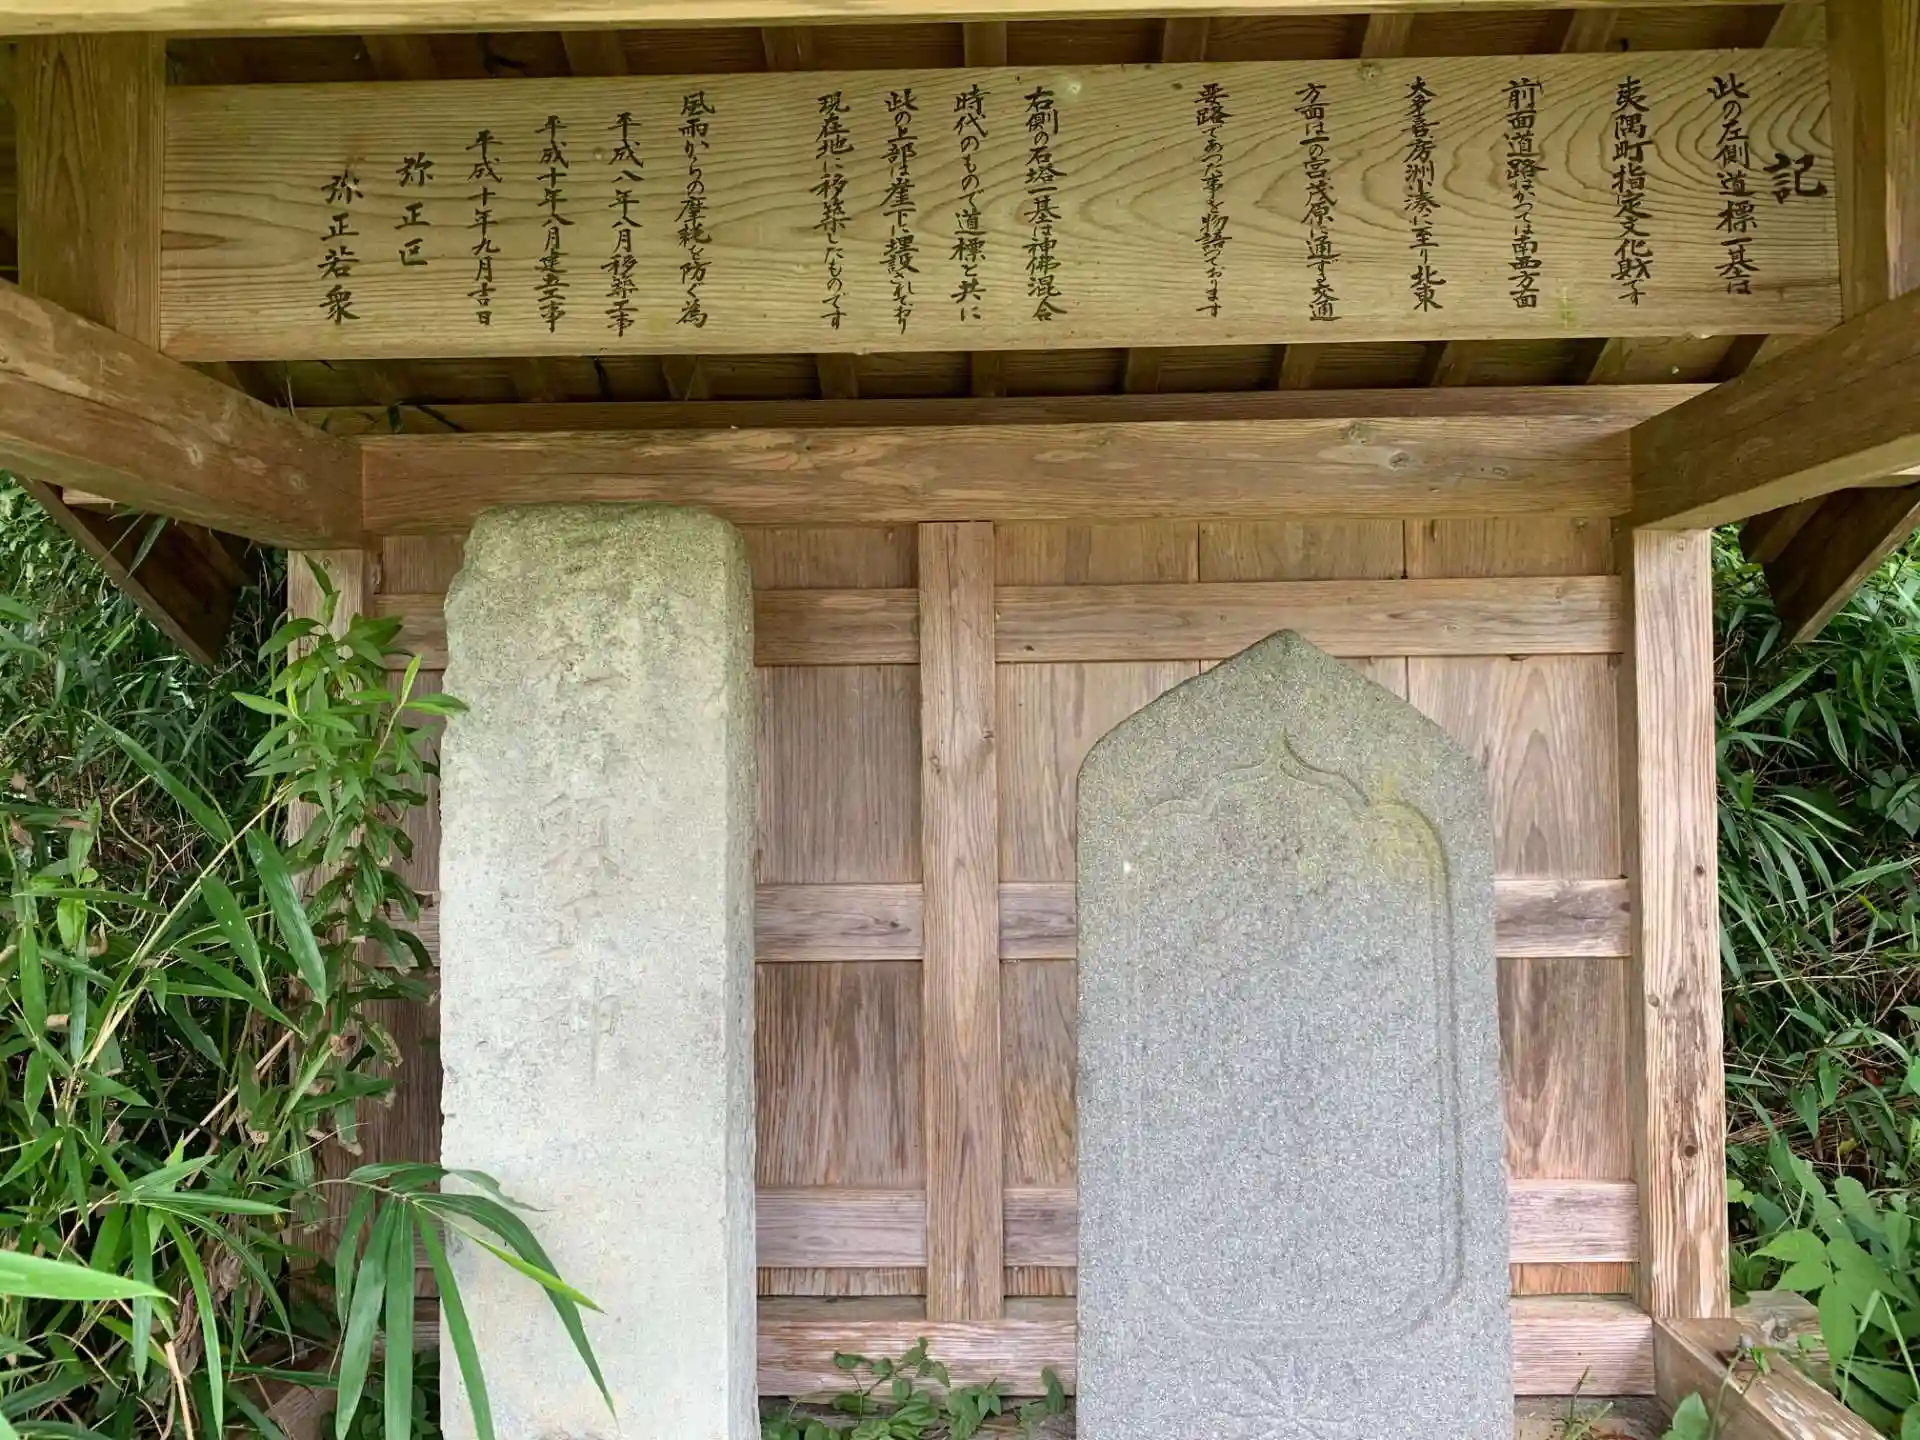 記
此の左側道標一基は
夷隅町指定文化財です
前面道路はかつては南西方面
大多喜房洲小湊に至り北東
方面は一の宮茂原に通ずる交通
要路であつた事を物語つております
右側の石塔一基は神佛混合
時代のもので道標と共に
此の上部は崖下に埋設されており
現在地に移築したものです
風雨からの摩耗を防ぐ為
平成八年八月移築工事
平成十年八月建立工事
平成十年九月吉日
弥正区
弥正若衆